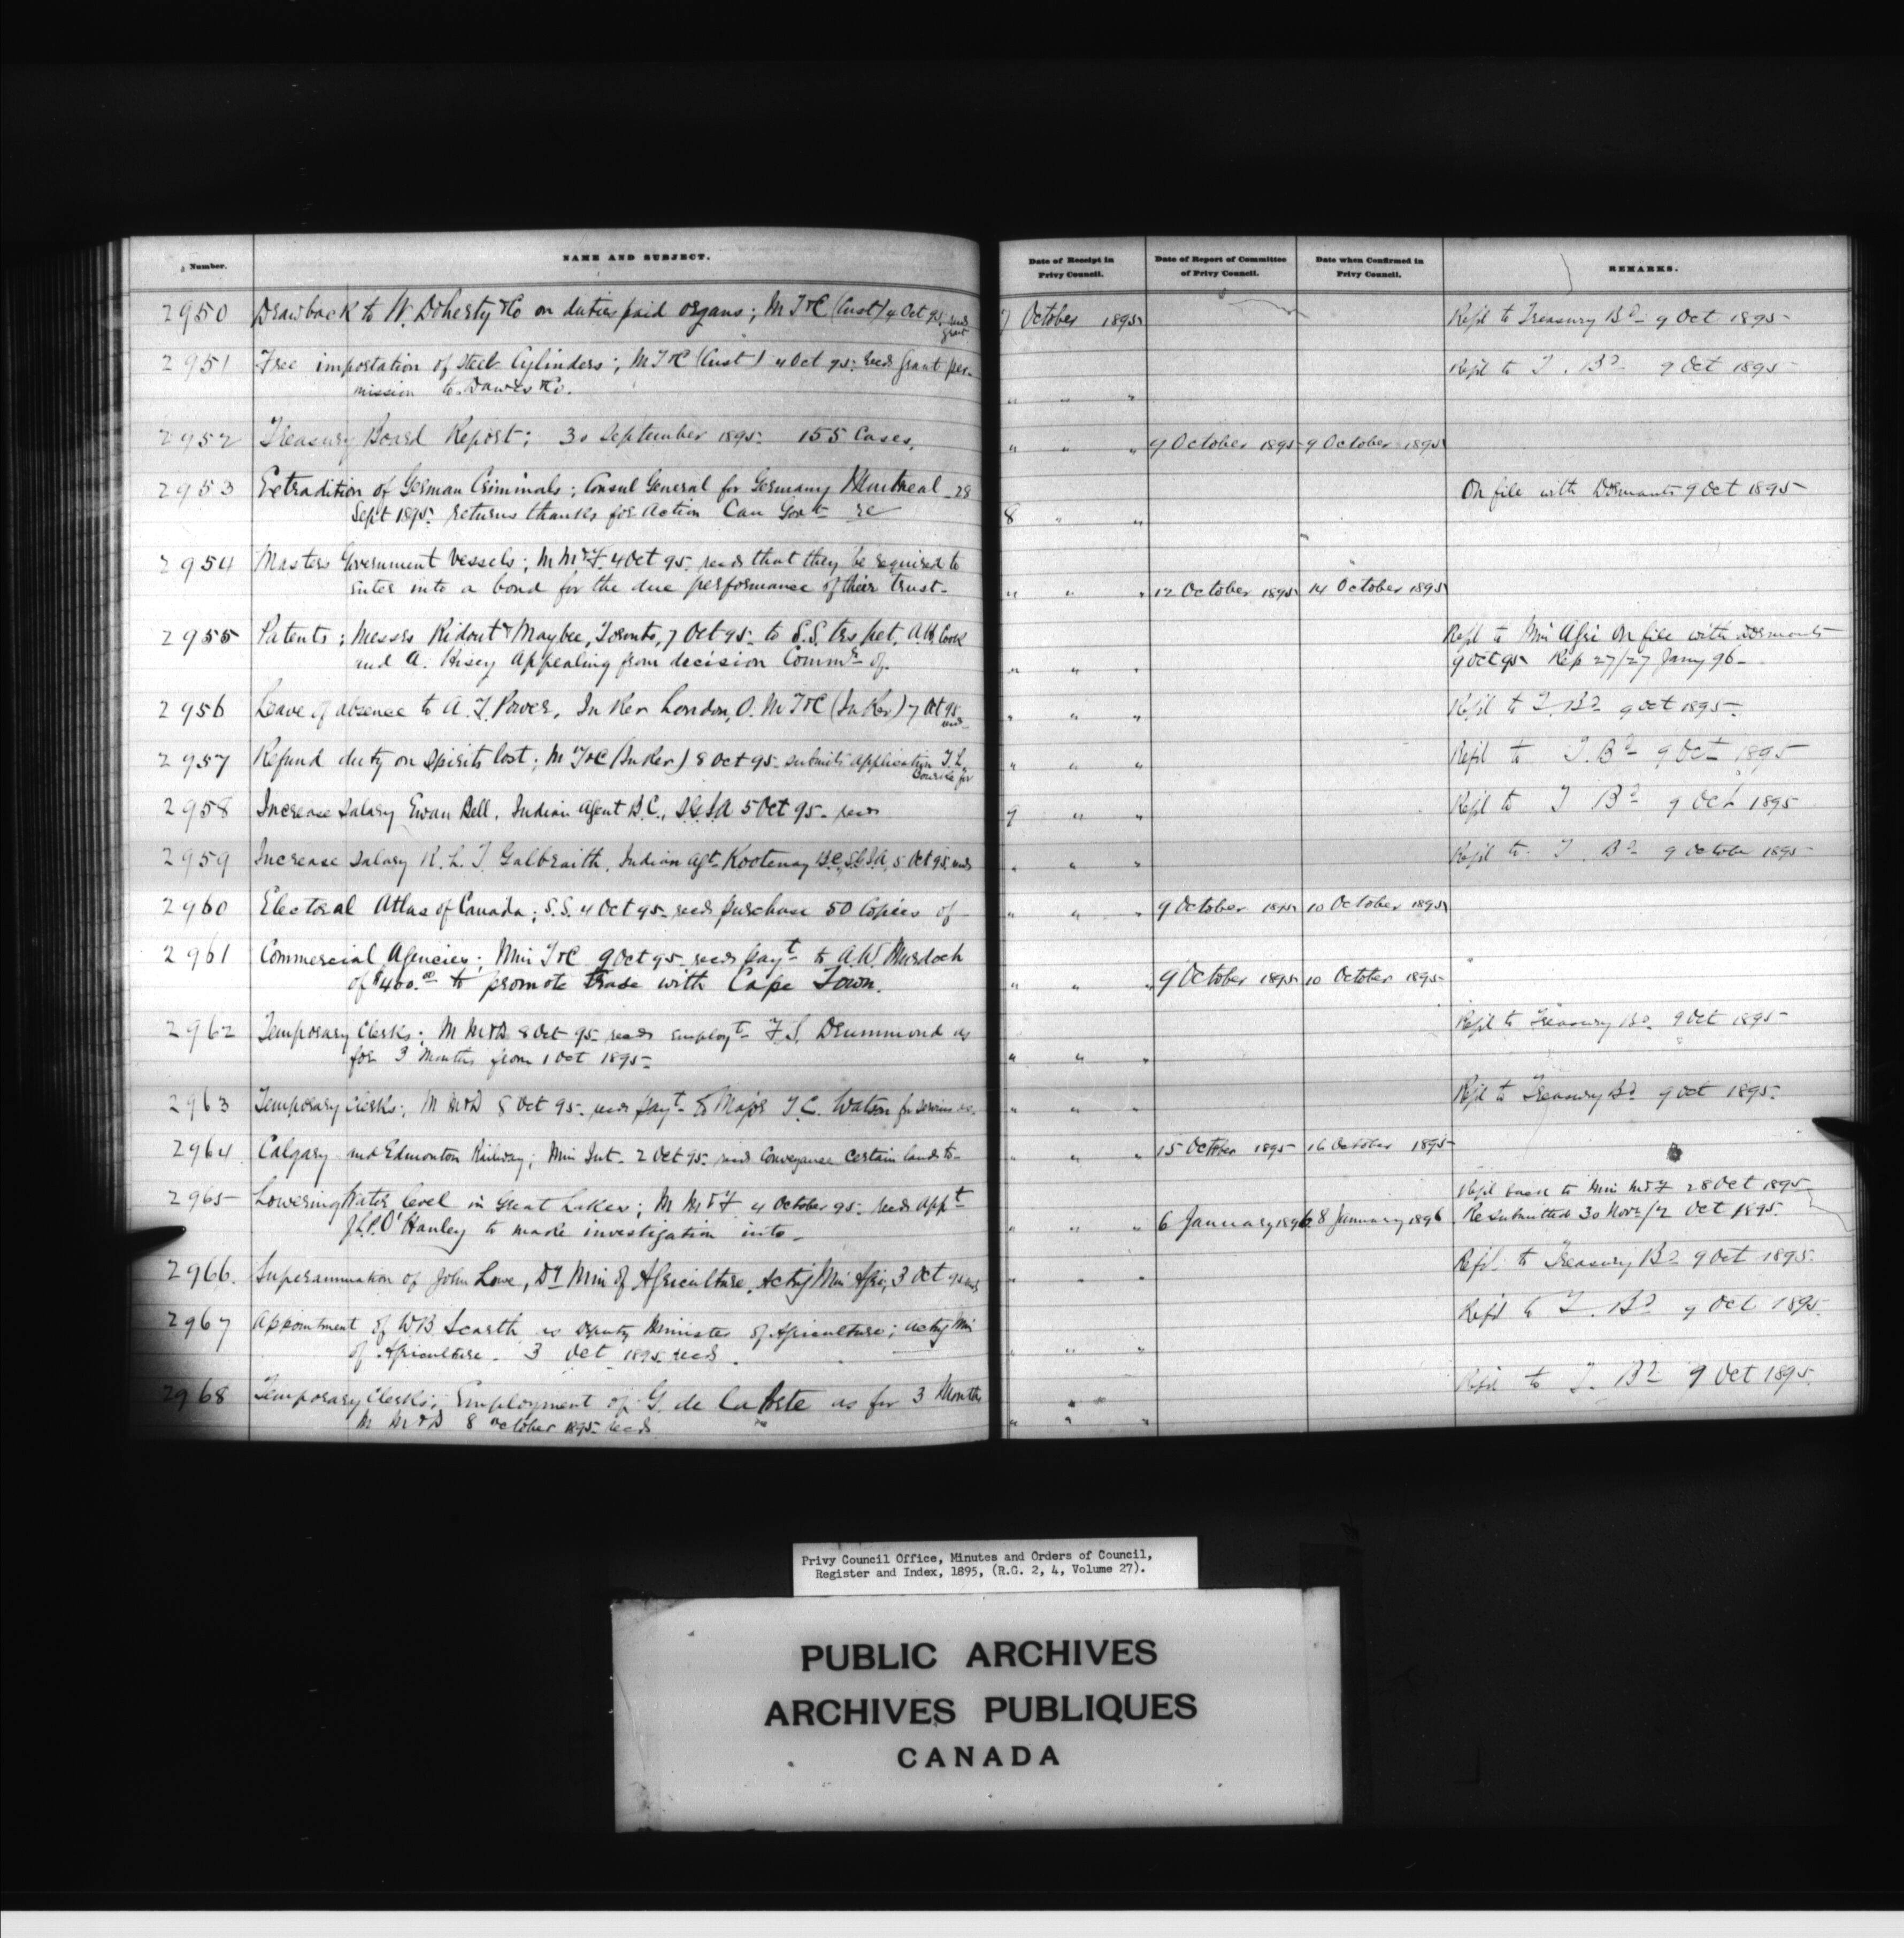 Number. NAME AND SUBJECT. Date of Receipt in Privy Council. Date of Report of Committee of Privy Council. Date when Confirmed in Privy Council. REMARKS.
2950 Drawback to W. Doherty & Co on duties paid organs; M T & C (Cust) 4 Oct 95 recds grant 7 October 1895 Refd to Treasury Bd 9 Oct 1895
2951 Free importation of Steel Cylinders; M T & C (Cust) 4 Oct 95 recds grant per-
mission to Dawes & Co. " " " Refd to T. Bd 9 Oct 1895
2952 Treasury Board Report; 30 September 1895 155 Cases. " " " 9 October 1895 9 October 1895
2953 Extradition of German Criminals; Consul General for Germany Montreal 28
Sept 1895 returns thanks for action Can Govt re 8 " " On file with Dormants 9 Oct 1895
2954 Masters Government Vessels; M M & F 4 Oct 95 recds that they be required to
enter into a bond for the due performance of their trust " " " 12 October 1895 14 October 1895
2955 Patents; Messrs Ridout & Maybee, Toronto, 7 Oct 95 to S.S. trs pet. Cook
and A. Hisey Appealing from decision Commr of. " " " Refd to Min Agri On file with Dormants
9 Oct 95 Rep 27/27 Jany 96
2956 Leave of absence to A. T. Power, In Rev London, O. M T & C (In Rev) 7 Oct 95 recds " " " Refd to T. Bd 9 Oct 1895
2957 Refund duty on Spirits lost; M T & C (In Rev) 8 Oct 95 submits application T. L. for " " " Refd to T. Bd 9 Oct 1895
2958 Increase Salary Ewan Bell, Indian Agent B.C., S.G.I.A 5 Oct 95 recds 9 " " Refd to T Bd 9 Oct 1895
2959 Increase Salary R. L. T. Galbraith, Indian Agt Kootenay B.C., S.G.I.A, 5 Oct 95 recds " " " Refd to T. Bd 9 October 1895
2960 Electoral Atlas of Canada; S.S. 4 Oct 95 recds purchase 50 Copies of " " " 9 October 1895 10 October 1895
2961 Commercial Agencies; Min T & C 9 Oct 95 recds payt to A.W. Murdoch
of $400.00 to promote trade with Cape Town. " " " 9 October 1895 10 October 1895
2962 Temporary Clerks; M M & D 8 Oct 95 recds employt F. S. Drummond as
for 3 Months from 1 Oct 1895 " " " Refd to Treasury Bd. 9 Oct 1895
2963 Temporary Clerks; M M & D 8 Oct 95 recds payt to Major T. C. Watson for services as. " " " Refd to Treasury Bd 9 Oct 1895
2964 Calgary and Edmonton Railway; Min Int. 2 Oct 95 recds Conveyance certain lands to " " " 15 October 1895 16 October 1895
2965 Lowering Water level in Great Lakes; M M & F 4 October 95 recds appt
J.L.P. O'Hanley to make investigation into " " " 6 January 1896 8 January 1896 Refd back to Min M & F 28 Oct 1895
Resubmitted 30 Novr/2 Oct 1895
2966. Superannuation of John Lowe, Dy Min of Agriculture, Actg Min Agri, 3 Oct 95 recds " " " Refd. to Treasury Bd 9 Oct 1895
2967 Appointment of WB Scarth as Deputy Minister of Agriculture; Actg Min
of Agriculture. 3 Oct 1895 recds. " " " Refd to T. Bd 9 Oct 1895.
2968 Temporary Clerks; Employment of G. de la Porte as for 3 Months
M M & D 8 October 1895 recds " " " Refd to T. Bd 9 Oct 1895
Privy Council Office, Minutes and Orders of Council,
Register and Index, 1895, (R.G. 2, 4, Volume 27).
PUBLIC ARCHIVES
ARCHIVES PUBLIQUES
CANADA